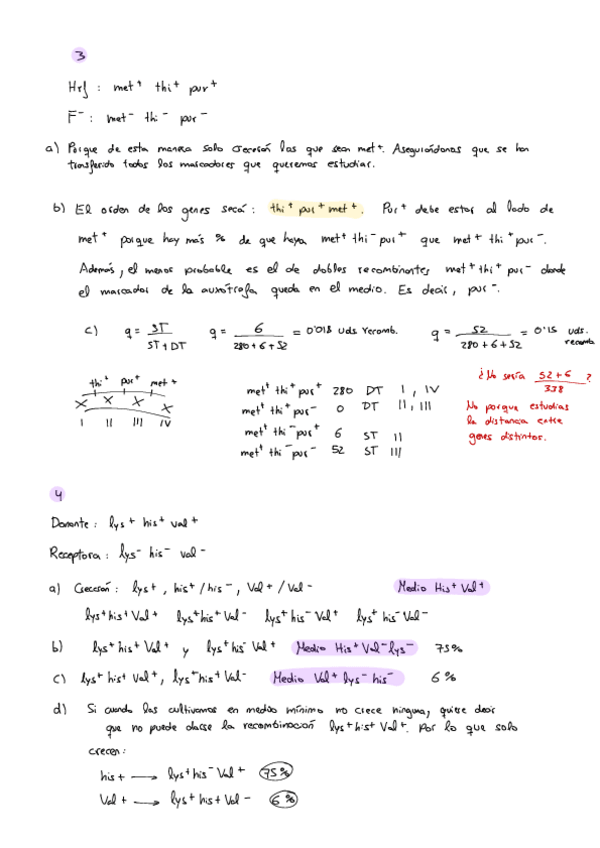 3
Hrf : met+ thi+ pur+
F- : met- thi- pur-
a) Porque de esta manera solo crecerán las que sean met+. Asegurándonos que se han
transferido todos los marcadores que queremos estudiar.
b) El orden de los genes será : thi+ pur+ met+. Pur+ debe estar al lado de
met+ porque hay más % de que haya met+ thi- pur+ que met+ thi+ pur-.
Además, el menos probable es el de dobles recombinantes met+ thi+ pur- donde
el marcador de la auxótrofa queda en el medio. Es decir, pur-.
c) q = ST / ST+DT q = 6 / 280+6+52 = 0'018 uds recomb. q = 52 / 280+6+52 = 0'15 uds. recomb
¿No sería 52+6 / 338 ?
No porque estudias
la distancia entre
genes distintos.
thi+ pur+ met+
X X X X
I II III IV
met+ thi+ pur+ 280 DT I, IV
met+ thi+ pur- 0 DT II, III
met+ thi- pur+ 6 ST II
met+ thi- pur- 52 ST III
4
Donante : lys+ his+ val+
Receptora : lys- his- val-
a) Crecerán : lys+, his+/his-, Val+/Val- Medio His+ Val+
lys+his+Val+ lys+his+Val- lys+his-Val+ lys+his-Val-
b) lys+his+Val+ y lys+his-Val+ Medio His+ Val- lys- 75%
c) lys+his+Val+, lys+his+Val- Medio Val+ lys- his- 6%
d) Si cuando las cultivamos en medio mínimo no crece ninguna, quiere decir
que no puede darse la recombinación lys+his+Val+. Por lo que solo
crecen:
his+ → lys+his-Val+ 75%
Val+ → lys+his+Val- 6%